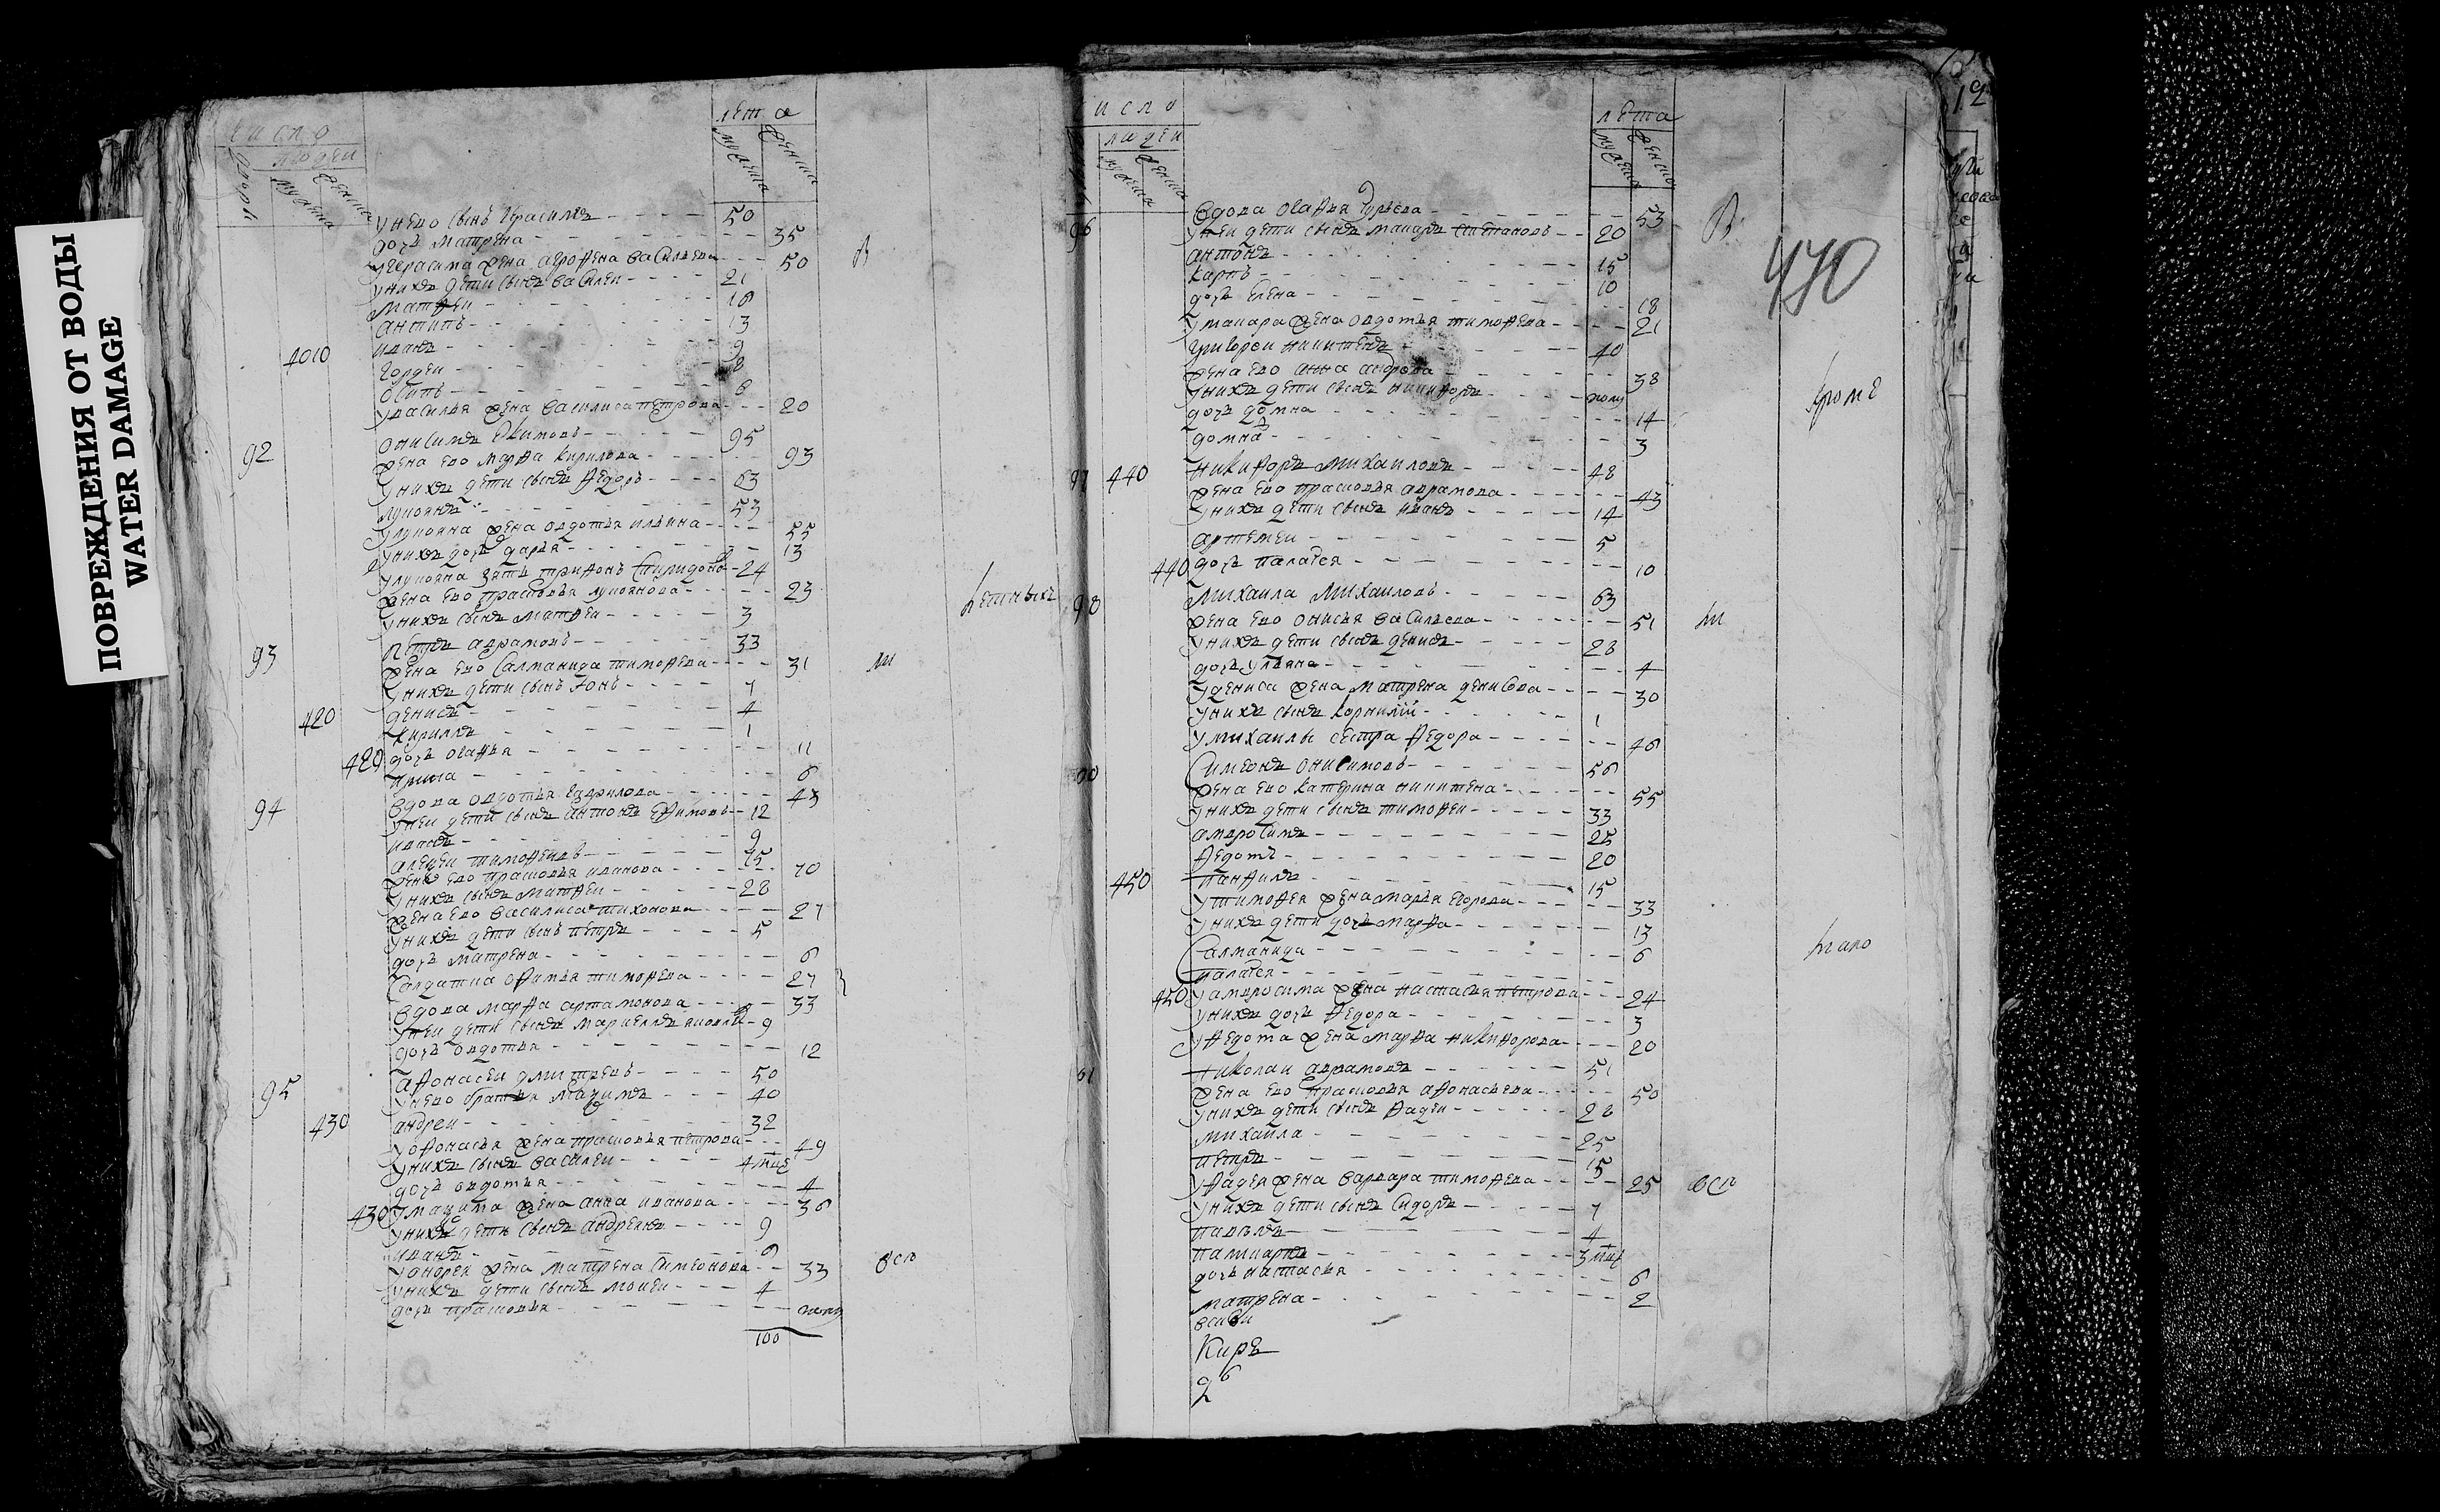 ПОВРЕЖДЕНИЯ ОТ ВОДЫ
WATER DAMAGE
число
людеи
лета
мужеска
женска
унево сынъ Герасимъ 50
дочь матрена 35
уГерасима жена аграфена васильева 50
унихъ дети сынъ василеи 21
матфеи 16
антипъ 13
4010 иванъ 9
Гордеи 8
осипъ 6
увасилья жена василиса петрова 20
92 онисимъ Екимовъ 95
жена ево марфа кирилова 93
унихъ дети сынъ Федоръ 63
лукоянъ 53
улукояна жена овдотья ильина 55
унихъ дочь дарья 13
улукояна зять трифонъ спиридоновъ 24
жена ево прасковья лукоянова 23
унихъ сынъ матфеи 3
93 петръ аврамовъ 33
жена ево Салманида тимофева 31
унихъ дети сынъ 7
420 денисъ 4
кирилъ 1
420 дочь огафья 11
ириша 6
94 вдова овдотья Гаврилова 43
унеи дети сынъ антонъ Ефимовъ 12
иванъ 9
алексеи тимофеевъ 75
жена ево прасковья иванова 70
унихъ сынъ матфеи 28
жена ево василиса тихонова 27
унихъ дети сынъ петръ 5
дочь матрена 6
Салдатка офимья тимофева 27
вдова марфа артамонова 33
унеи дети сынъ маркеллъ яковлевъ 9
дочь овдотья 12
95 афонасеи дмитревъ 50
унево братья мазимъ 40
430 андреи 32
уофонасья жена прасковья петрова 49
унихъ сынъ василеи 4
дочь овдотья 4
430 умазима жена анна иванова 36
унихъ дети сынъ андреянъ 9
иванъ 6
уондрея жена матрена Симеонова 33
унихъ дети сынъ мокеи 4
дочь прасковья
100
число
людеи
лета
мужеска
женска
470
96 вдова огафья Гурьева 53
унеи дети сынъ макаръ степановъ 20
антонъ 15
карпъ 10
дочь Елена 18
умакара жена овдотья тимофева 21
Григореи никитенъ 40
жена ево анна 38
унихъ дети сынъ никифоръ полу
дочь домна 14
домна 3
97 440 никифоръ михаиловъ 48
жена ево прасковья аврамова 43
унихъ дети сынъ иванъ 14
артемеи 5
440 дочь палагея 10
98 михаила михаиловъ 63
жена ево онисья васильева 51
унихъ дети сынъ денисъ 28
дочь ульяна 4
уДениса жена матрена денисова 30
унихъ сынъ корнилий 1
умихаилы сестра Федора 46
Симеонъ онисимовъ 56
жена ево катерина никитена 55
унихъ дети сынъ тимофеи 33
амвросимъ 25
Федотъ 20
450 панфилъ 15
утимофея жена марья Егорова 33
унихъ дети дочь марфа 13
Салманида 6
палагея
450 уамвросима жена настасья петрова 24
унихъ дочь Федора 3
уФедота жена марфа никифорова 20
николаи аврамовъ 51
жена ево прасковья афонасьева 50
унихъ дети сынъ Фадеи 28
михаила 25
петръ 15
уФадея жена варвара тимофева 25
унихъ дети сынъ Сидоръ 7
павелъ 4
патпкаръ 3
дочь настасья 6
матрена 2
Киръ